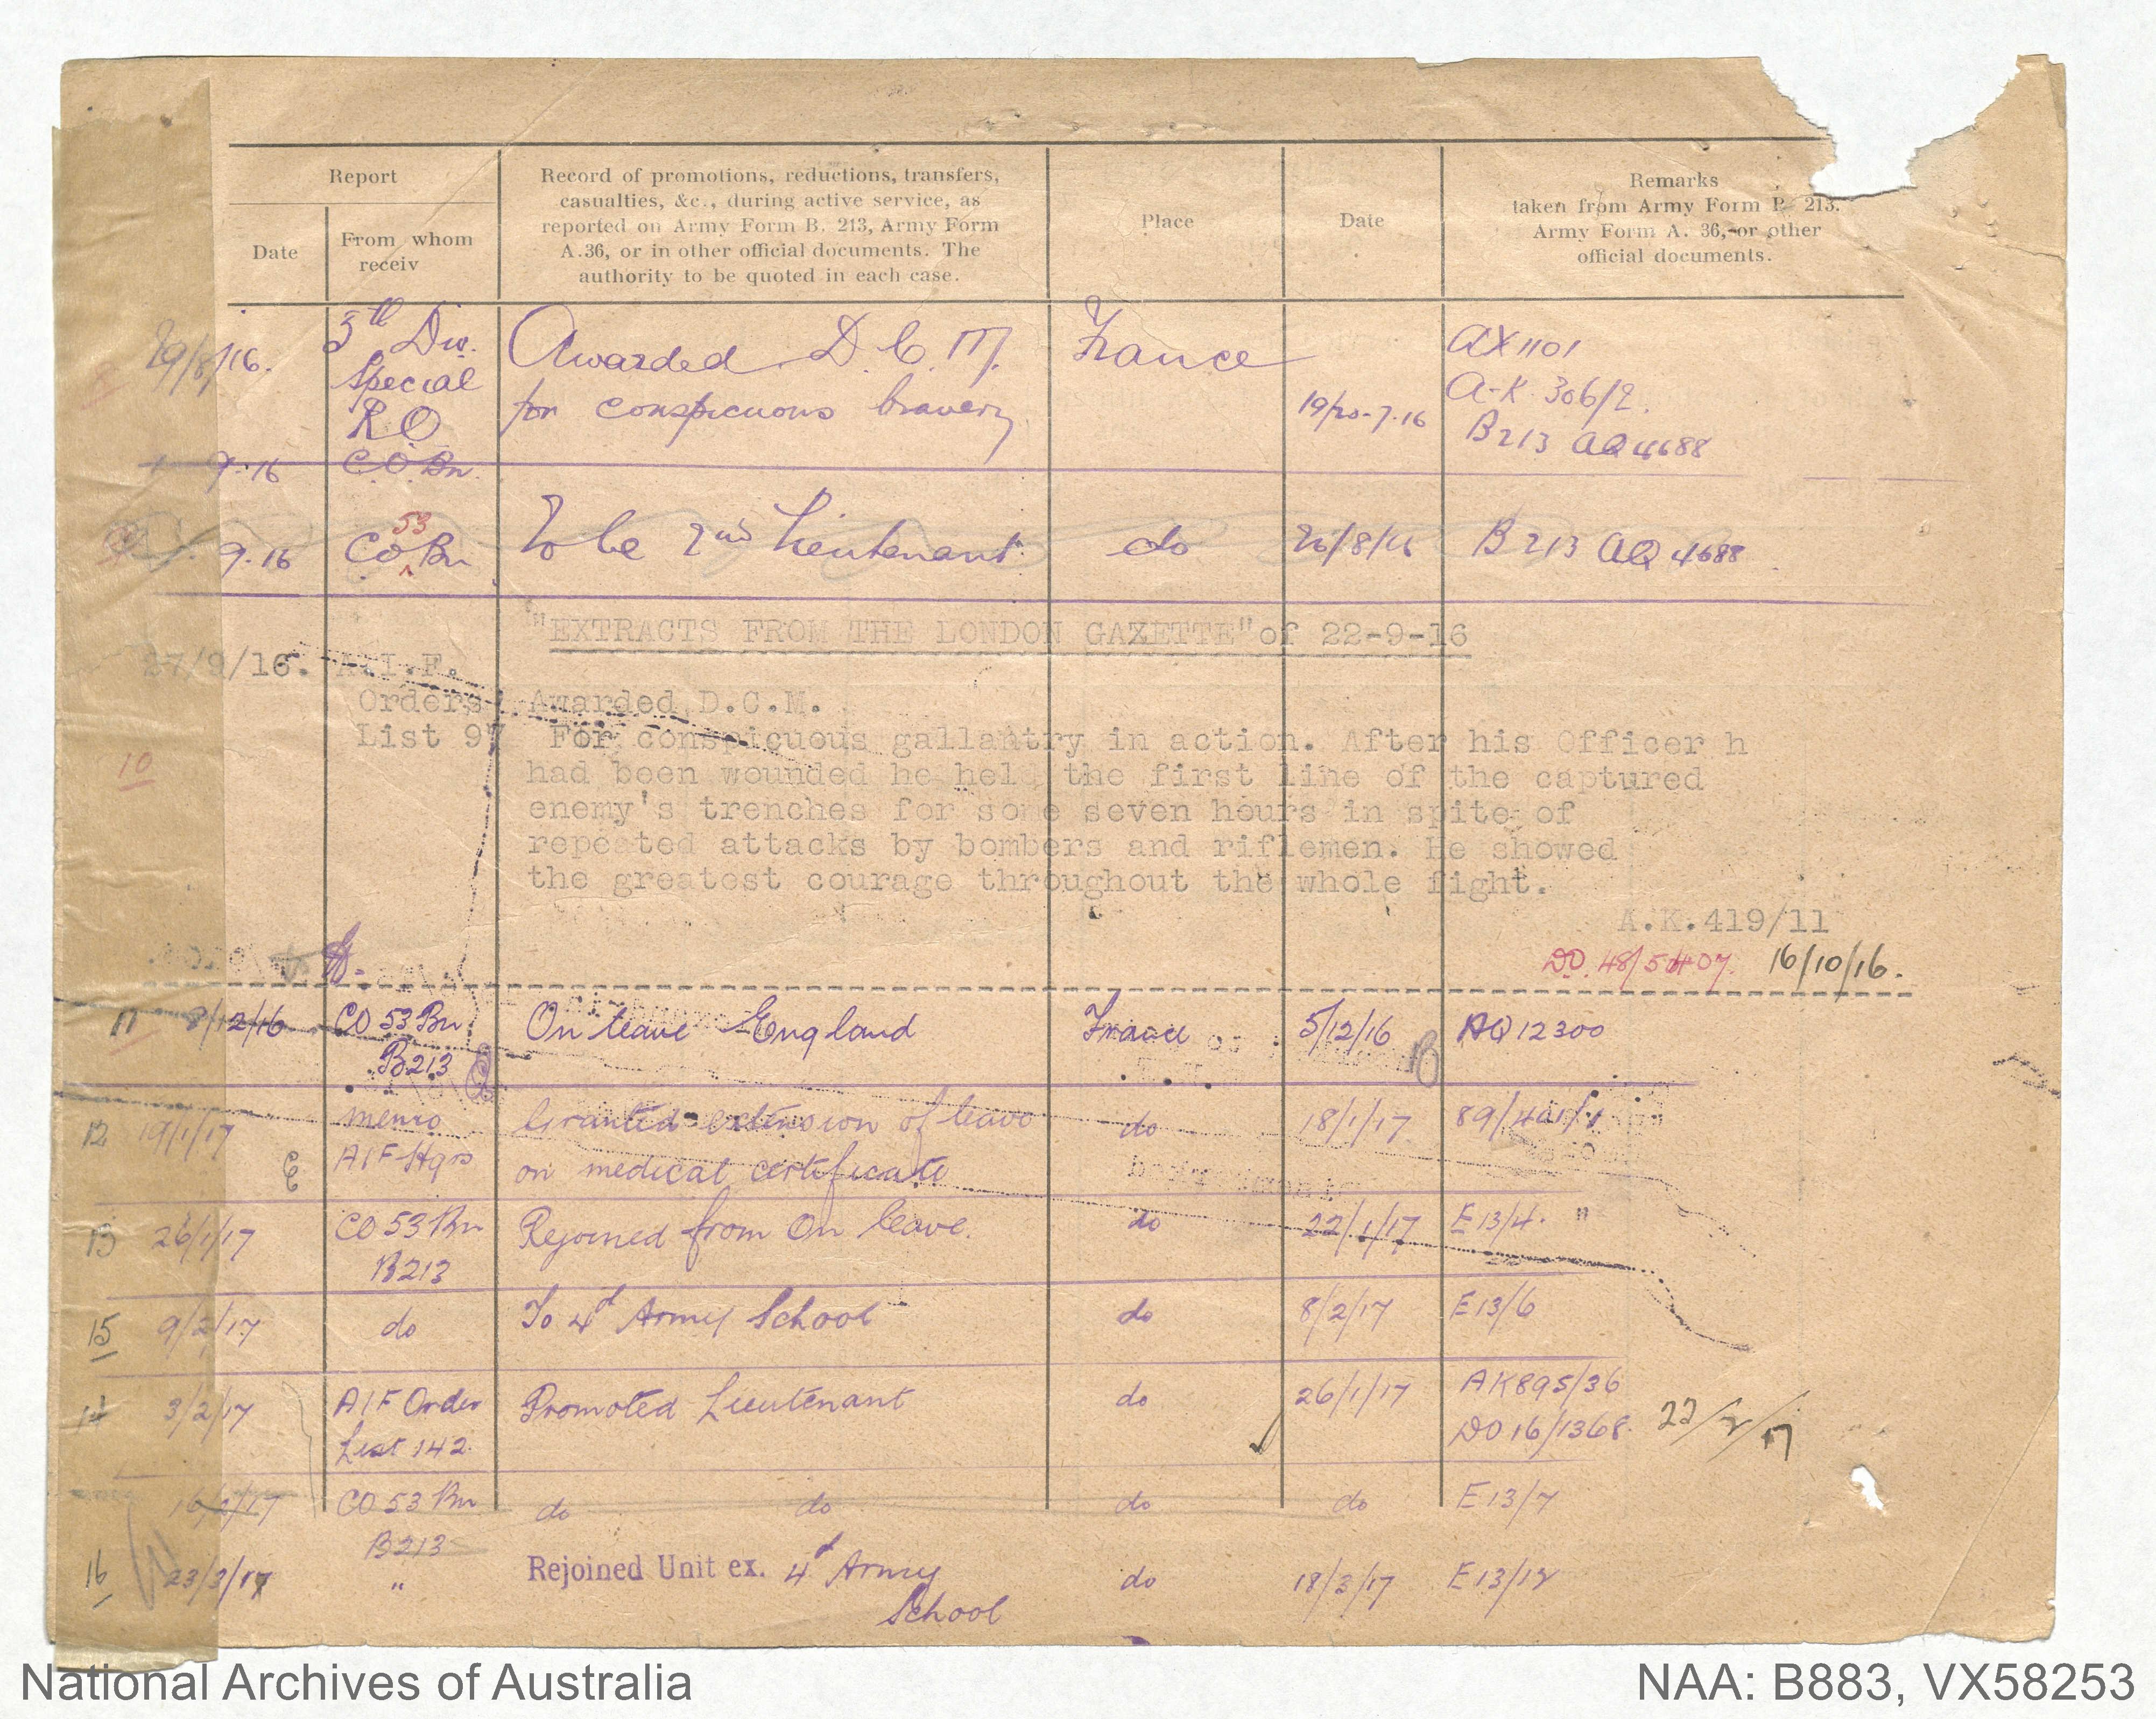 Report
Record of promotions, reductions, transfers,
casualties, &c., during active service, as
reported on Army Form B. 213, Army Form
A.36, or in other official documents. The
authority to be quoted in each case.
Date
From whom
receiv
Place
Date
Remarks
taken from Army Form B. 213.
Army Form A. 36, or other
official documents.
29/8/16. 5th Div. Awarded D.C.M. France AX 1101
Special for conspicuous bravery 19/20-7-16 A-K 306/2.
RO B213 AQ 4688
9-16 CO Bn.
9.16 CO 53 Bn To be 2nd Lieutenant do 20/8/16 B213 AQ 4688
"EXTRACTS FROM THE LONDON GAZETTE" of 22-9-16
27/9/16. A.I.F.
Orders Awarded D.C.M.
List 97 For conspicuous gallantry in action. After his Officer h
10 had been wounded he held the first line of the captured
enemy's trenches for some seven hours in spite of
repeated attacks by bombers and riflemen. He showed
the greatest courage throughout the whole fight.
A.K.419/11
DO. 48/5407 16/10/16.
11 8/12/16 CO 53 Bn On leave England France 5/12/16 AQ 12300
B213
12 19/1/17 memo Granted extension of leave do 18/1/17 89/401/1
AIF Hqrs on medical certificate
13 26/1/17 CO 53 Bn Rejoined from On leave. do 22/1/17 E13/4. "
B213
15 9/2/17 do To 4th Army School do 8/2/17 E13/6
14 3/2/17 AIF Order Promoted Lieutenant do 26/1/17 AK895/36
List 142. DO 16/1368. 22/2/17
16/2/17 CO 53 Bn do do do do E13/7
B213
16 23/3/17 " Rejoined Unit ex. 4th Army do 18/3/17 E13/12
School
National Archives of Australia
NAA: B883, VX58253